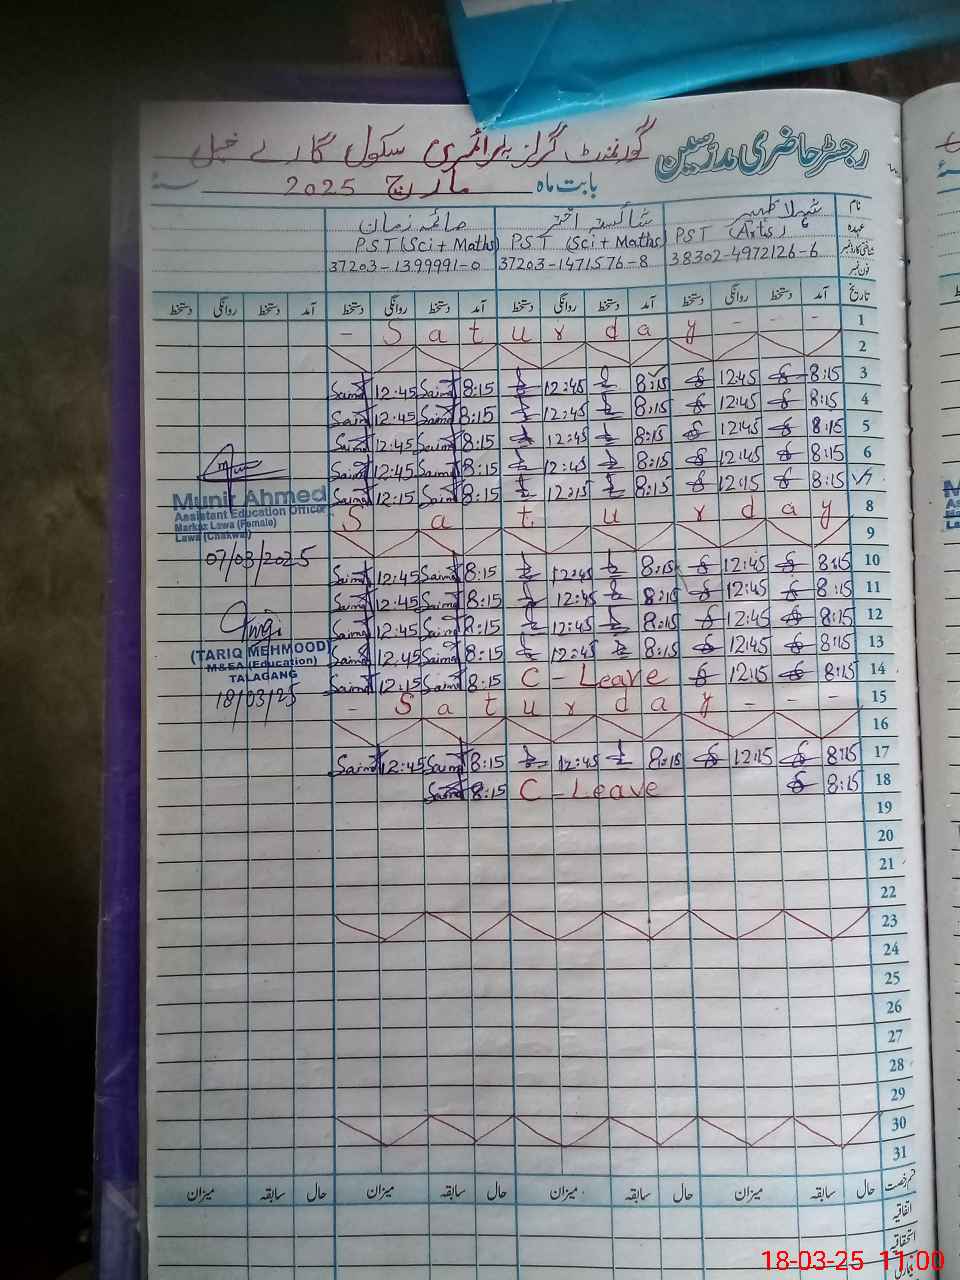 رجسٹر حاضری مدرسین گورنمنٹ گرلز پرائمری سکول
بابت ماہ مارچ 2025 سنہ
نام شہلا ظہیر شائستہ اختر صائمہ زمان
عہدہ PST (Arts) PST (Sci + Maths) PST (Sci + Maths)
شناختی کارڈ نمبر 38302-4972126-6 37203-1471576-8 37203-1399991-0
فون نمبر
تاریخ آمد دستخط روانگی دستخط آمد دستخط روانگی دستخط آمد دستخط روانگی دستخط آمد دستخط روانگی دستخط
1 - Saturday - - -
2
3 8:15 12:45 8:15 12:45 8:15 Saima 12:45 Saima
4 8:15 12:45 8:15 12:45 8:15 Saima 12:45 Saima
5 8:15 12:45 8:15 12:45 8:15 Saima 12:45 Saima
6 8:15 12:45 8:15 12:45 8:15 Saima 12:45 Saima
7 8:15 12:15 8:15 12:15 8:15 Saima 12:15 Saima
8 Saturday
9
10 8:15 12:45 8:15 12:45 8:15 Saima 12:45 Saima
11 8:15 12:45 8:15 12:45 8:15 Saima 12:45 Saima
12 8:15 12:45 8:15 12:45 8:15 Saima 12:45 Saima
13 8:15 12:45 8:15 12:45 8:15 Saima 12:45 Saima
14 8:15 12:15 C - Leave 8:15 Saima 12:15 Saima
15 - Saturday - - -
16
17 8:15 12:15 8:15 12:45 8:15 Saima 12:45 Saima
18 8:15 C - Leave 8:15 Saima
19
20
21
22
23
24
25
26
27
28
29
30
31
Munir Ahmed
Assistant Education Officer
Markaz Lawa (Female)
Lawa (Chakwal)
07/03/2025
(TARIQ MEHMOOD)
M&EA (Education)
TALAGANG
18/03/25
قسم رخصت حال سابقہ میزان حال سابقہ میزان حال سابقہ میزان حال سابقہ میزان
اتفاقیہ
استحقاقیہ
18-03-25 11:00